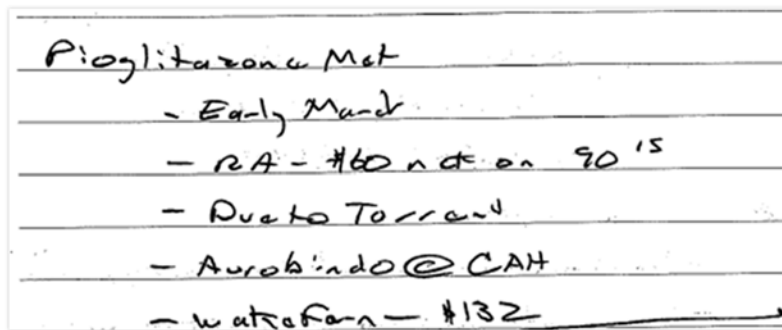 Pioglitazone Met
- Early March
- RA - $60 net on 90's
- Due to Torrent
- Aurobindo @ CAH
- - $132